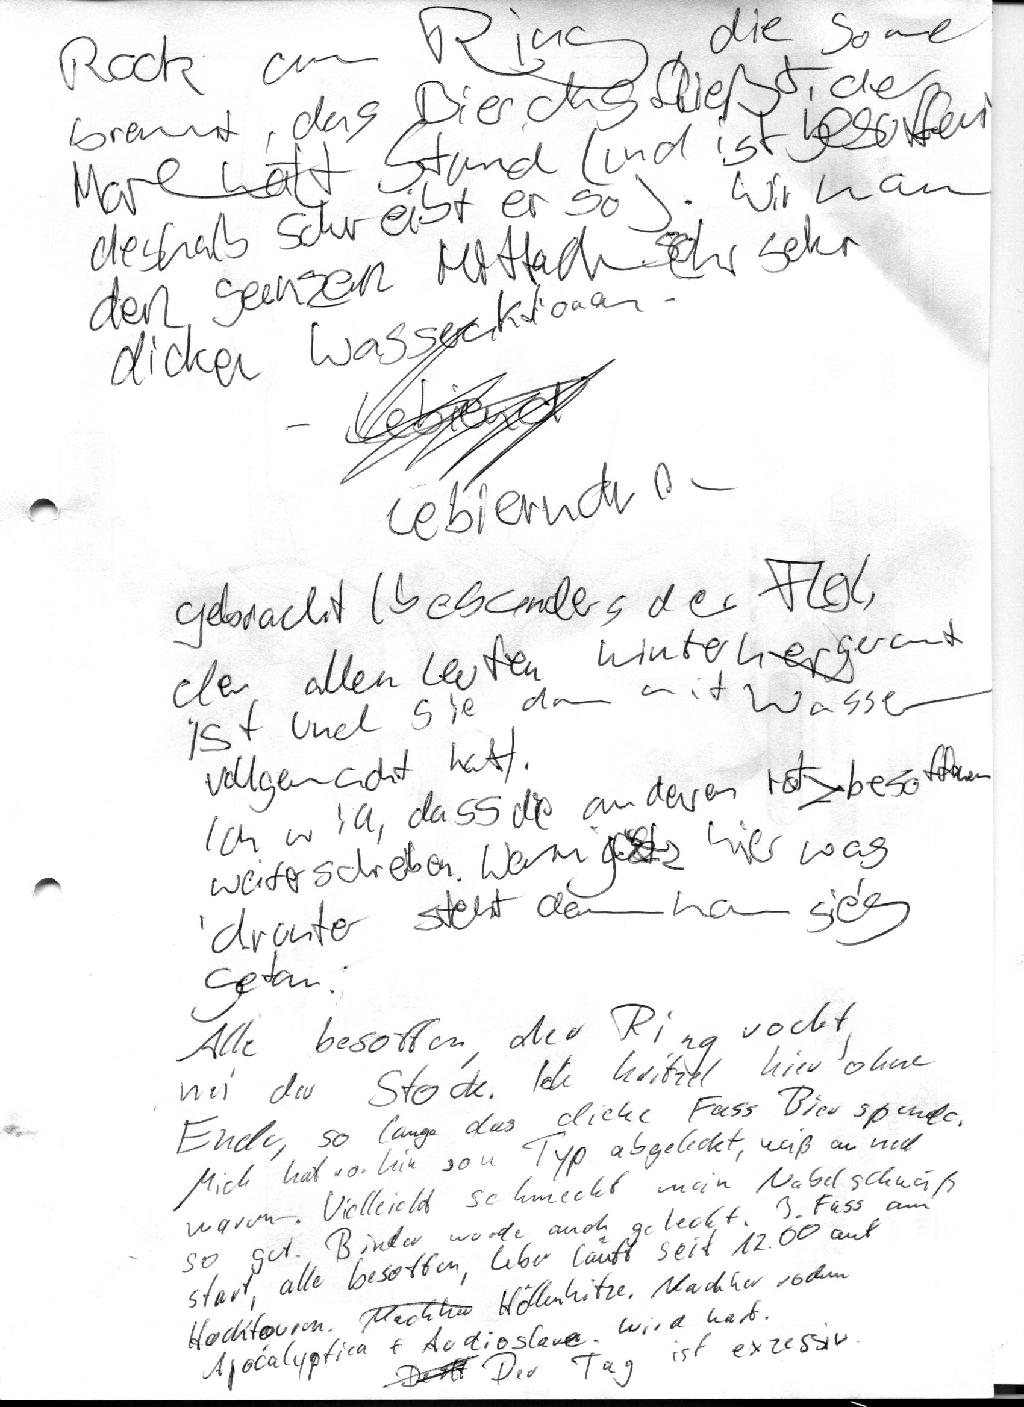 Rock am Ring, die Sonne
brennt, das Bier das fließt, der
Marc hält Stand (und ist besoffen
deshalb schreibt er so). Wir ham
den ganzen Mittach sehr sehr
dicken Wasseraktionen -
- Lebiend
Lebierndr -
gebracht (besonders der Flol,
der allen Leuten hinterhergerannt
ist und sie dann mit Wasser
vollgemacht hat).
Ich will, dass die anderen rotzbesoffenen
weiterschreiben. Wenn jetz hier was
drunter steht dann ham sie's
getan:
Alle besoffen, der Ring rockt,
wie der Stock. Ich kritzel hier ohne
Ende, so lange das dicke Fass Bier spende.
Mich hat vorhin son Typ abgeleckt, weiß an und
warum. Vielleicht schmeckt mein Nabelschweiß
so gut. Binder wurde auch geleckt. 3. Fass am
start, alle besoffen, Leber läuft seit 12.00 auf
Hochtouren. Nachher Höllenhitze. Nachher rocken
Apocalyptica + Audioslave. Wird hart.
Der Tag ist exzessiv.